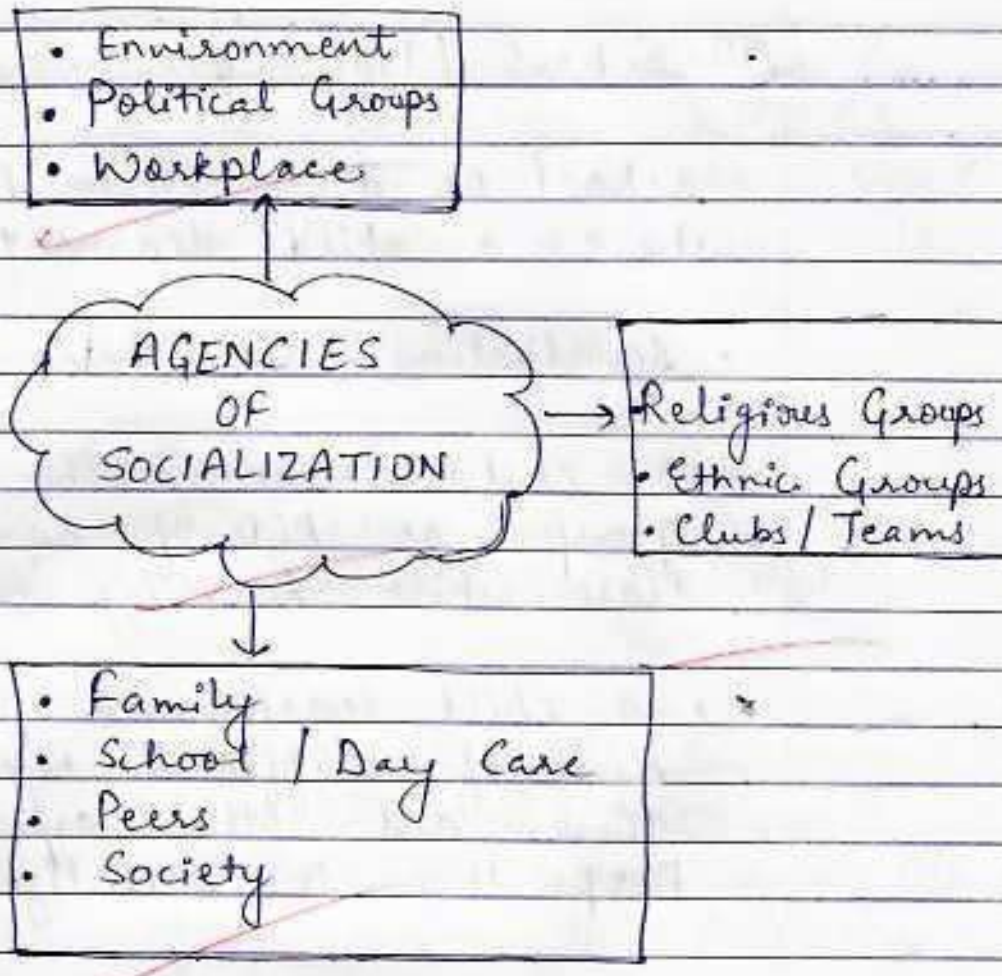 • Environment
• Political Groups
• Workplace
AGENCIES
OF
SOCIALIZATION
• Religious Groups
• Ethnic Groups
• Clubs / Teams
• Family
• School / Day Care
• Peers
• Society